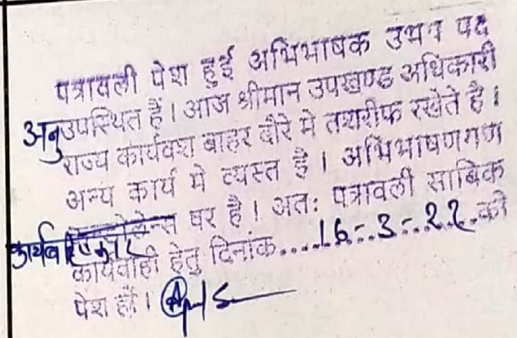 पत्रावली पेश हुई अभिभाषक उभय पक्ष
अनुउपस्थित हैं। आज श्रीमान उपखण्ड अधिकारी
राज्य कार्यवश बाहर दौरे मे तशरीफ रखेते है।
अन्य कार्य मे व्यस्त है। अभिभाषणगण
पर है। अतः पत्रावली साबिक
कार्यवाही हेतु दिनांक....16-3-22..को
पेश हो।